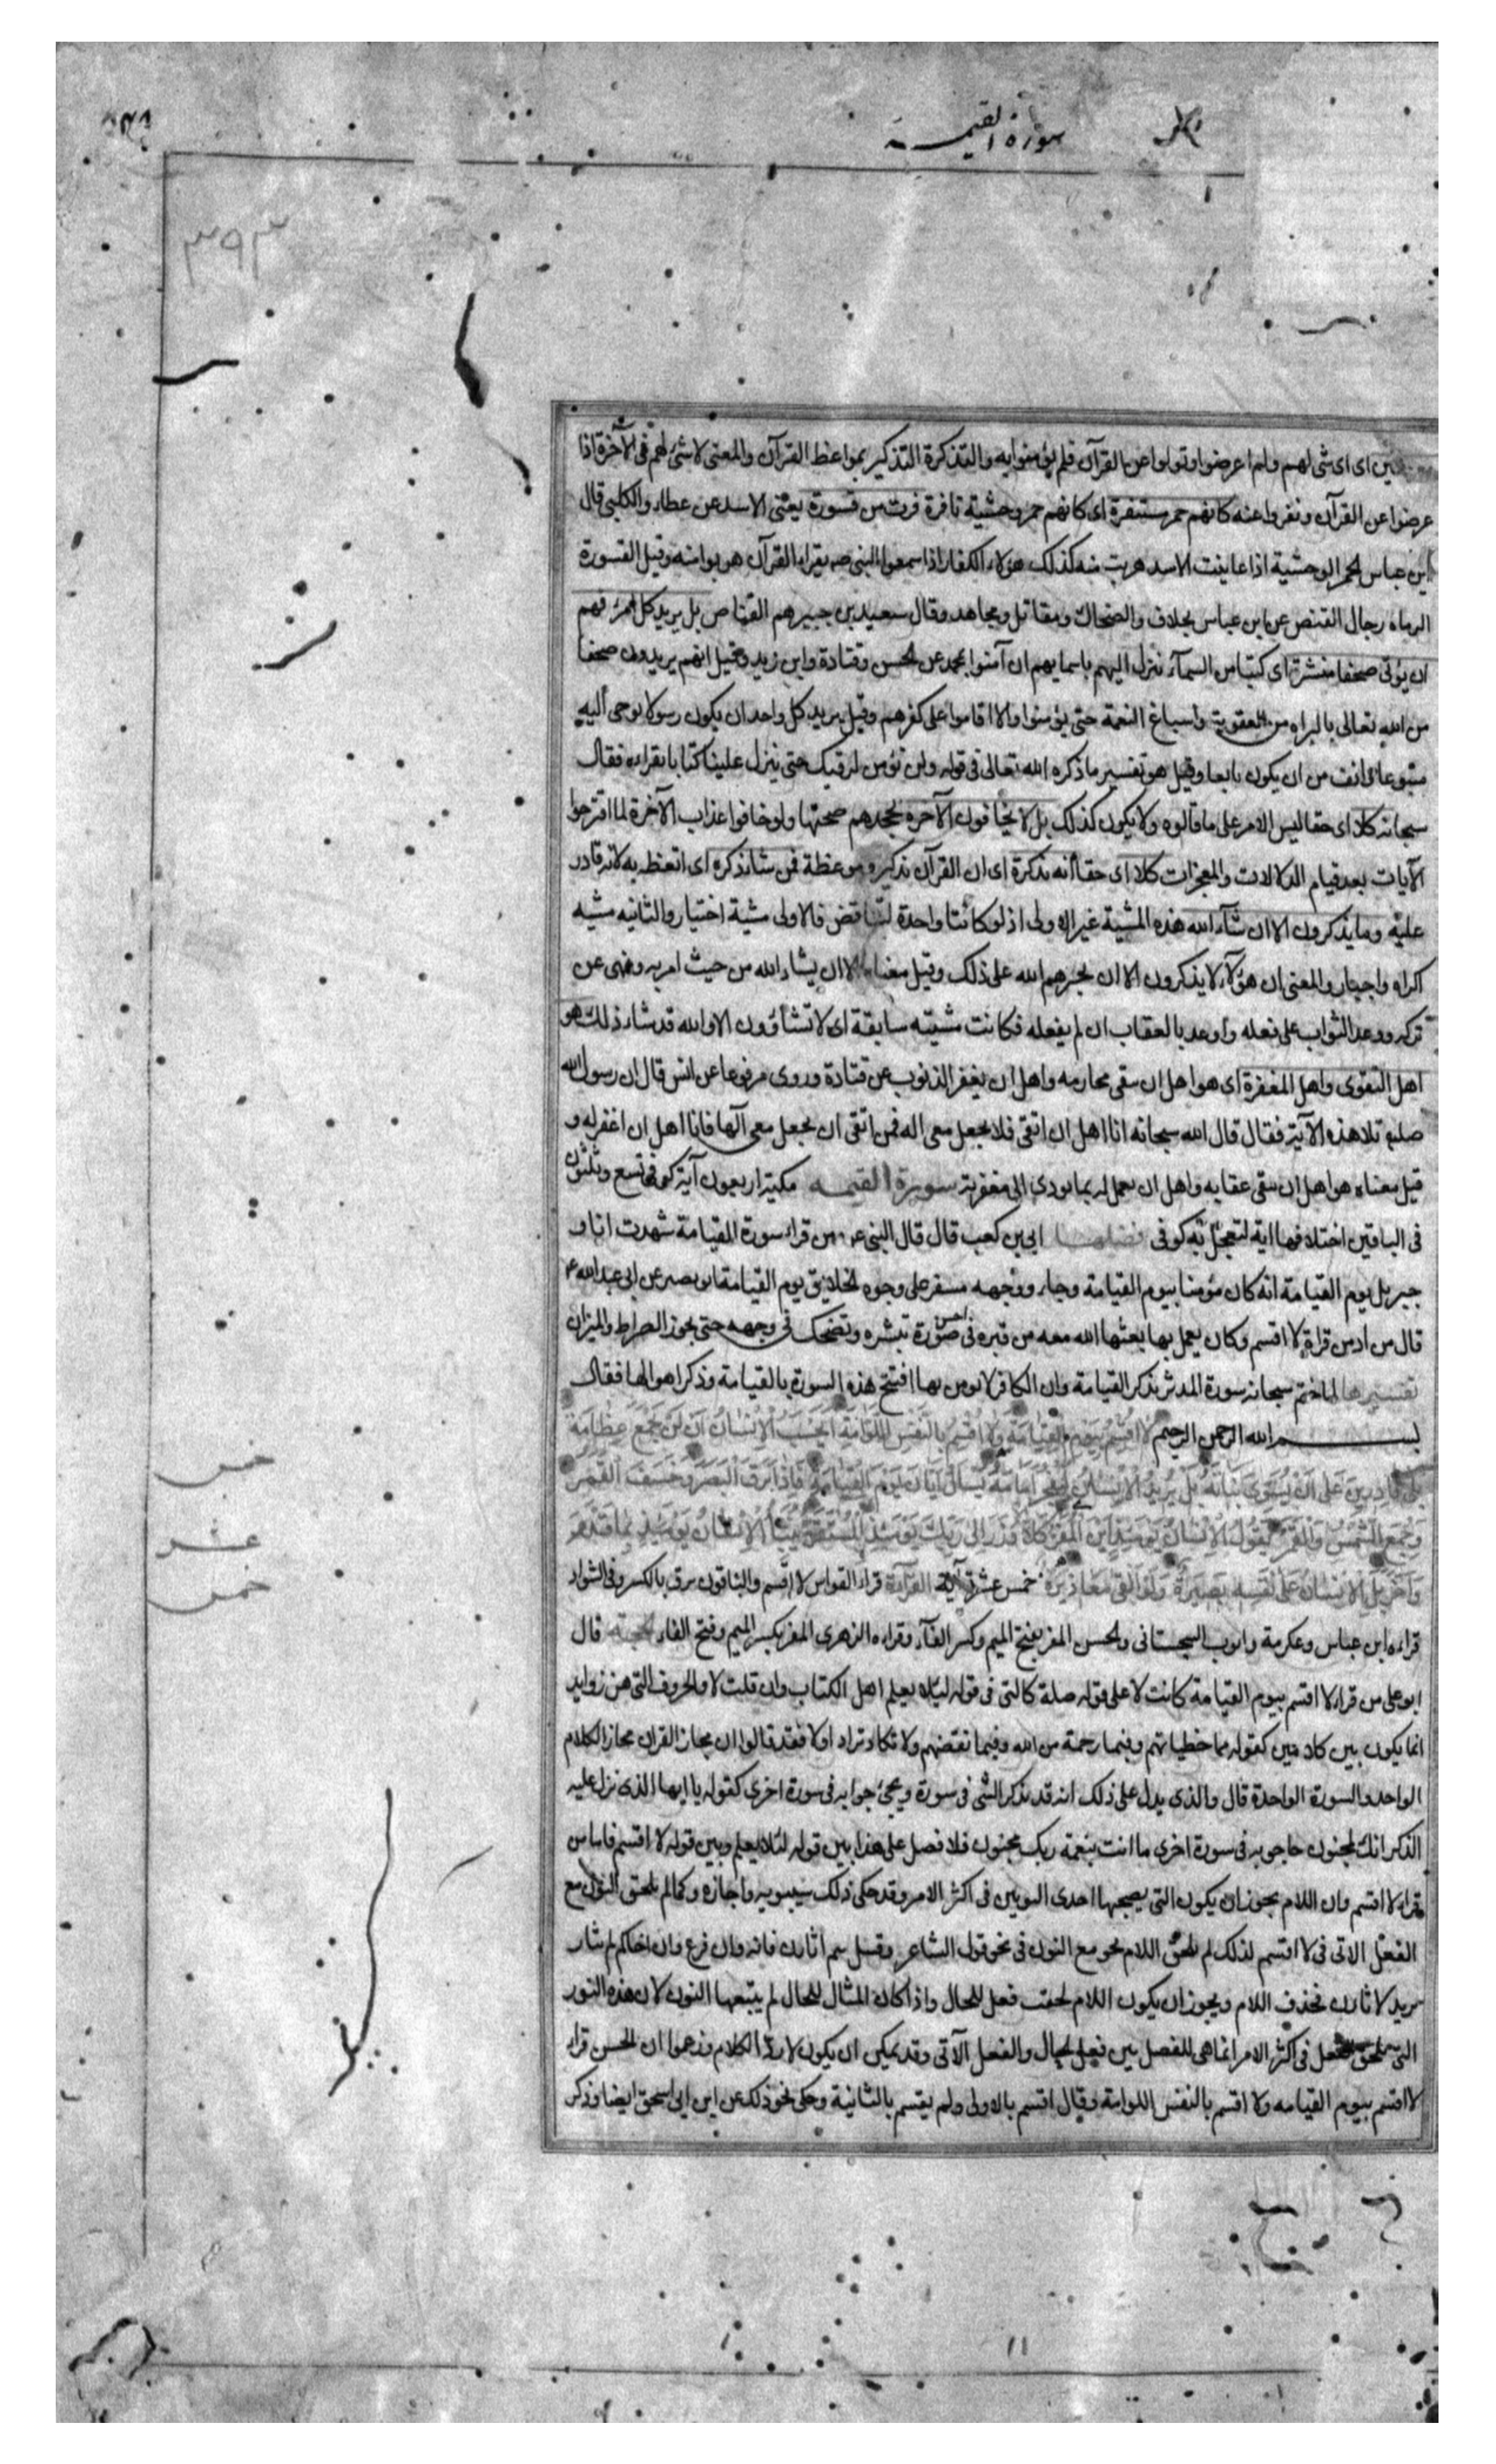 سورة القيمـــة
٣٩٣
اى اى شى لهم ولم اعرضوا وتولوا عن القرآن فلم يؤمنوا به والتذكرة التذكير بمواعظ القرآن والمعنى لا شئ لهم فى الآخرة اذا
عرضوا عن القرآن ونفروا عنه كانهم حمر مستنفرة اى كانهم حمر وحشية نافرة فرت من قسورة يعنى الاسد عن عطاء والكلبى قال
ابن عباس الحمر الوحشية اذا عاينت الاسد هربت منه كذلك هؤلاء الكفار اذا سمعوا النبى ص يقراء القرآن هربوا منه وقيل القسورة
الرماه رجال القنص عن ابن عباس بخلاف والضحاك ومقاتل ومجاهد وقال سعيد بن جبير هم القناص بل يريد كل امرئ منهم
ان يؤتى صحفا منشرة اى كتبا من السمآء تنزل اليهم باسمايهم ان آمنوا بمحمد عن الحسن وقتادة وابن زيد وقيل انهم يريدون صحفا
من الله تعالى بالبراه من العقوبة واسباغ النعمة حتى يؤمنوا والا اقاموا على كفرهم وقيل يريد كل واحد ان يكون رسولا يوحى اليه
متبوعا وانف من ان يكون تابعا وقيل هو تفسير ما ذكره الله تعالى فى قوله ولن نؤمن لرقيك حتى ينزل علينا كتابا نقراءه فقال
سبحانه كلا اى حقا ليس الامر على ما قالوه ولا يكون كذلك بل لا يخافون الآخره بجحدهم صحتها ولو خافوا عذاب الآخرة لما اقترحوا
الآيات بعد قيام الدلالات والمعجزات كلا اى حقا انه تذكرة اى ان القرآن تذكير وموعظة فمن شاء ذكره اى اتعظ به لانه قادر
عليه وما يذكرون الا ان شآء الله هذه المشية غير الاولى اذ لو كانتا واحدة لتناقض فالاولى مشية اختيار والثانيه مشيه
اكراه واجبار والمعنى ان هؤلآء لا يذكرون الا ان يجبرهم الله على ذلك وقيل معناه الا ان يشاء الله من حيث امر به ونهى عن
تركه ووعد الثواب على فعله واوعد بالعقاب ان لم يفعله فكانت مشيته سابقة اى لا تشاؤون الا والله قد شاء ذلك هو
اهل التقوى واهل المغفرة اى هو اهل ان يتقى محارمه واهل ان يغفر الذنوب عن قتادة وروى مرفوعا عن انس قال ان رسول الله
صلعم تلا هذه الآية فقال قال الله سبحانه انا اهل ان اتقى فلا يجعل معى اله فمن اتقى ان يجعل معى آلها فانا اهل ان اغفر له و
قيل معناه هو اهل ان يتقى عقابه واهل ان يعمل له بما يودى الى مغفرته سورة القيمـه مكية اربعون آية كوفى تسع وثلثون
فى الباقين اختلافها اية لتعجل به كوفى فضلهـا ابى بن كعب قال قال النبى ص من قراء سورة القيامة شهدت انا و
جبريل يوم القيامة انه كان مؤمنا بيوم القيامة وجاء ووجهه مسفر على وجوه الخلايق يوم القيامة ابو بصير عن ابى عبد الله ع
قال من ادمن قراة لا اقسم وكان يعمل بها بعثها الله معه من قبره فى احسن صورة تبشره وتضحك فى وجهه حتى يجوز الصراط والميزان
تفسيرها لما ختم سبحانه سورة المدثر بذكر القيامة وان الكافر لا يومن بها افتتح هذه السورة بالقيامة وذكر اهوالها فقال
بســـم الله الرحمن الرحيم لا اقسم بيوم القيامة ولا اقسم بالنفس اللوامة ايحسب الانسان ان لن نجمع عظامه
بلى قادرين على ان نسوى بنانه بل يريد الانسان ليفجر امامه يسال ايان يوم القيامة فاذا برق البصر وخسف القمر
وجمع الشمس والقمر يقول الانسان يومئذ اين المفر كلا لا وزر الى ربك يومئذ المستقر ينبأ الانسان يومئذ بما قدم
واخر بل الانسان على نفسه بصيرة ولو القى معاذيره خمس عشرة آية القرآءة قراء القواس لا اقسم والباقون برق بالكسر وفى الشواذ
قراءه ابن عباس وعكرمة وايوب السجستانى والحسن المفر بفتح الميم وكسر الفآء وقراءه الزهرى المفر بكسر الميم وفتح الفاء الحجة قال
ابو على من قراء لا اقسم بيوم القيامة كانت لا على قوله صلة كالتى فى قوله لئلا يعلم اهل الكتاب وان قلت لا والحروف التى هن زوايد
انما يكون بين كلامين كقوله مما خطياتهم وفبما رحمة من الله وفبما نقضهم ولا تكاد تزاد اولا فقد قالوا ان مجاز القران مجاز الكلام
الواحد والسورة الواحدة قال والذى يدل على ذلك انه قد يذكر الشى فى سورة ويجئ جوابه فى سورة اخرى كقوله يا ايها الذى نزل عليه
الذكر انك لمجنون جا جوابه فى سورة اخرى ما انت بنعمة ربك بمجنون فلا فصل على هذا بين قوله لئلا يعلم وبين قوله لا اقسم فاما من
قراء لا اقسم فان اللام يجوز ان يكون التى يصحبها احدى النونين فى اكثر الامر وقد حكى ذلك سيبويه واجازه وكما لم يلحق النون مع
الفعل الاتى فى لا اقسم لذلك لم يلحق اللام نحو مع النون فى نحو قول الشاعر وقتيل مرة اثارن فانه وان فرع وان اخاكم لم يثار
يريد لاثارن فحذف اللام ويجوز ان يكون اللام لحقت فعل الحال واذا كان المثال للحال لم يتبعها النون لان هذه النون
التى تلحق الفعل فى اكثر الامر انما هى للفصل بين فعل الحال والفعل الآتى وقد يمكن ان يكون لا ردا لكلام وزعموا ان الحسن قراء
لا اقسم بيوم القيامه ولا اقسم بالنفس اللوامة وقال اقسم بالاولى ولم يقسم بالثانية وحكى نحو ذلك عن ابن ابى اسحق ايضا وذكر
خمس
عشر
خمس